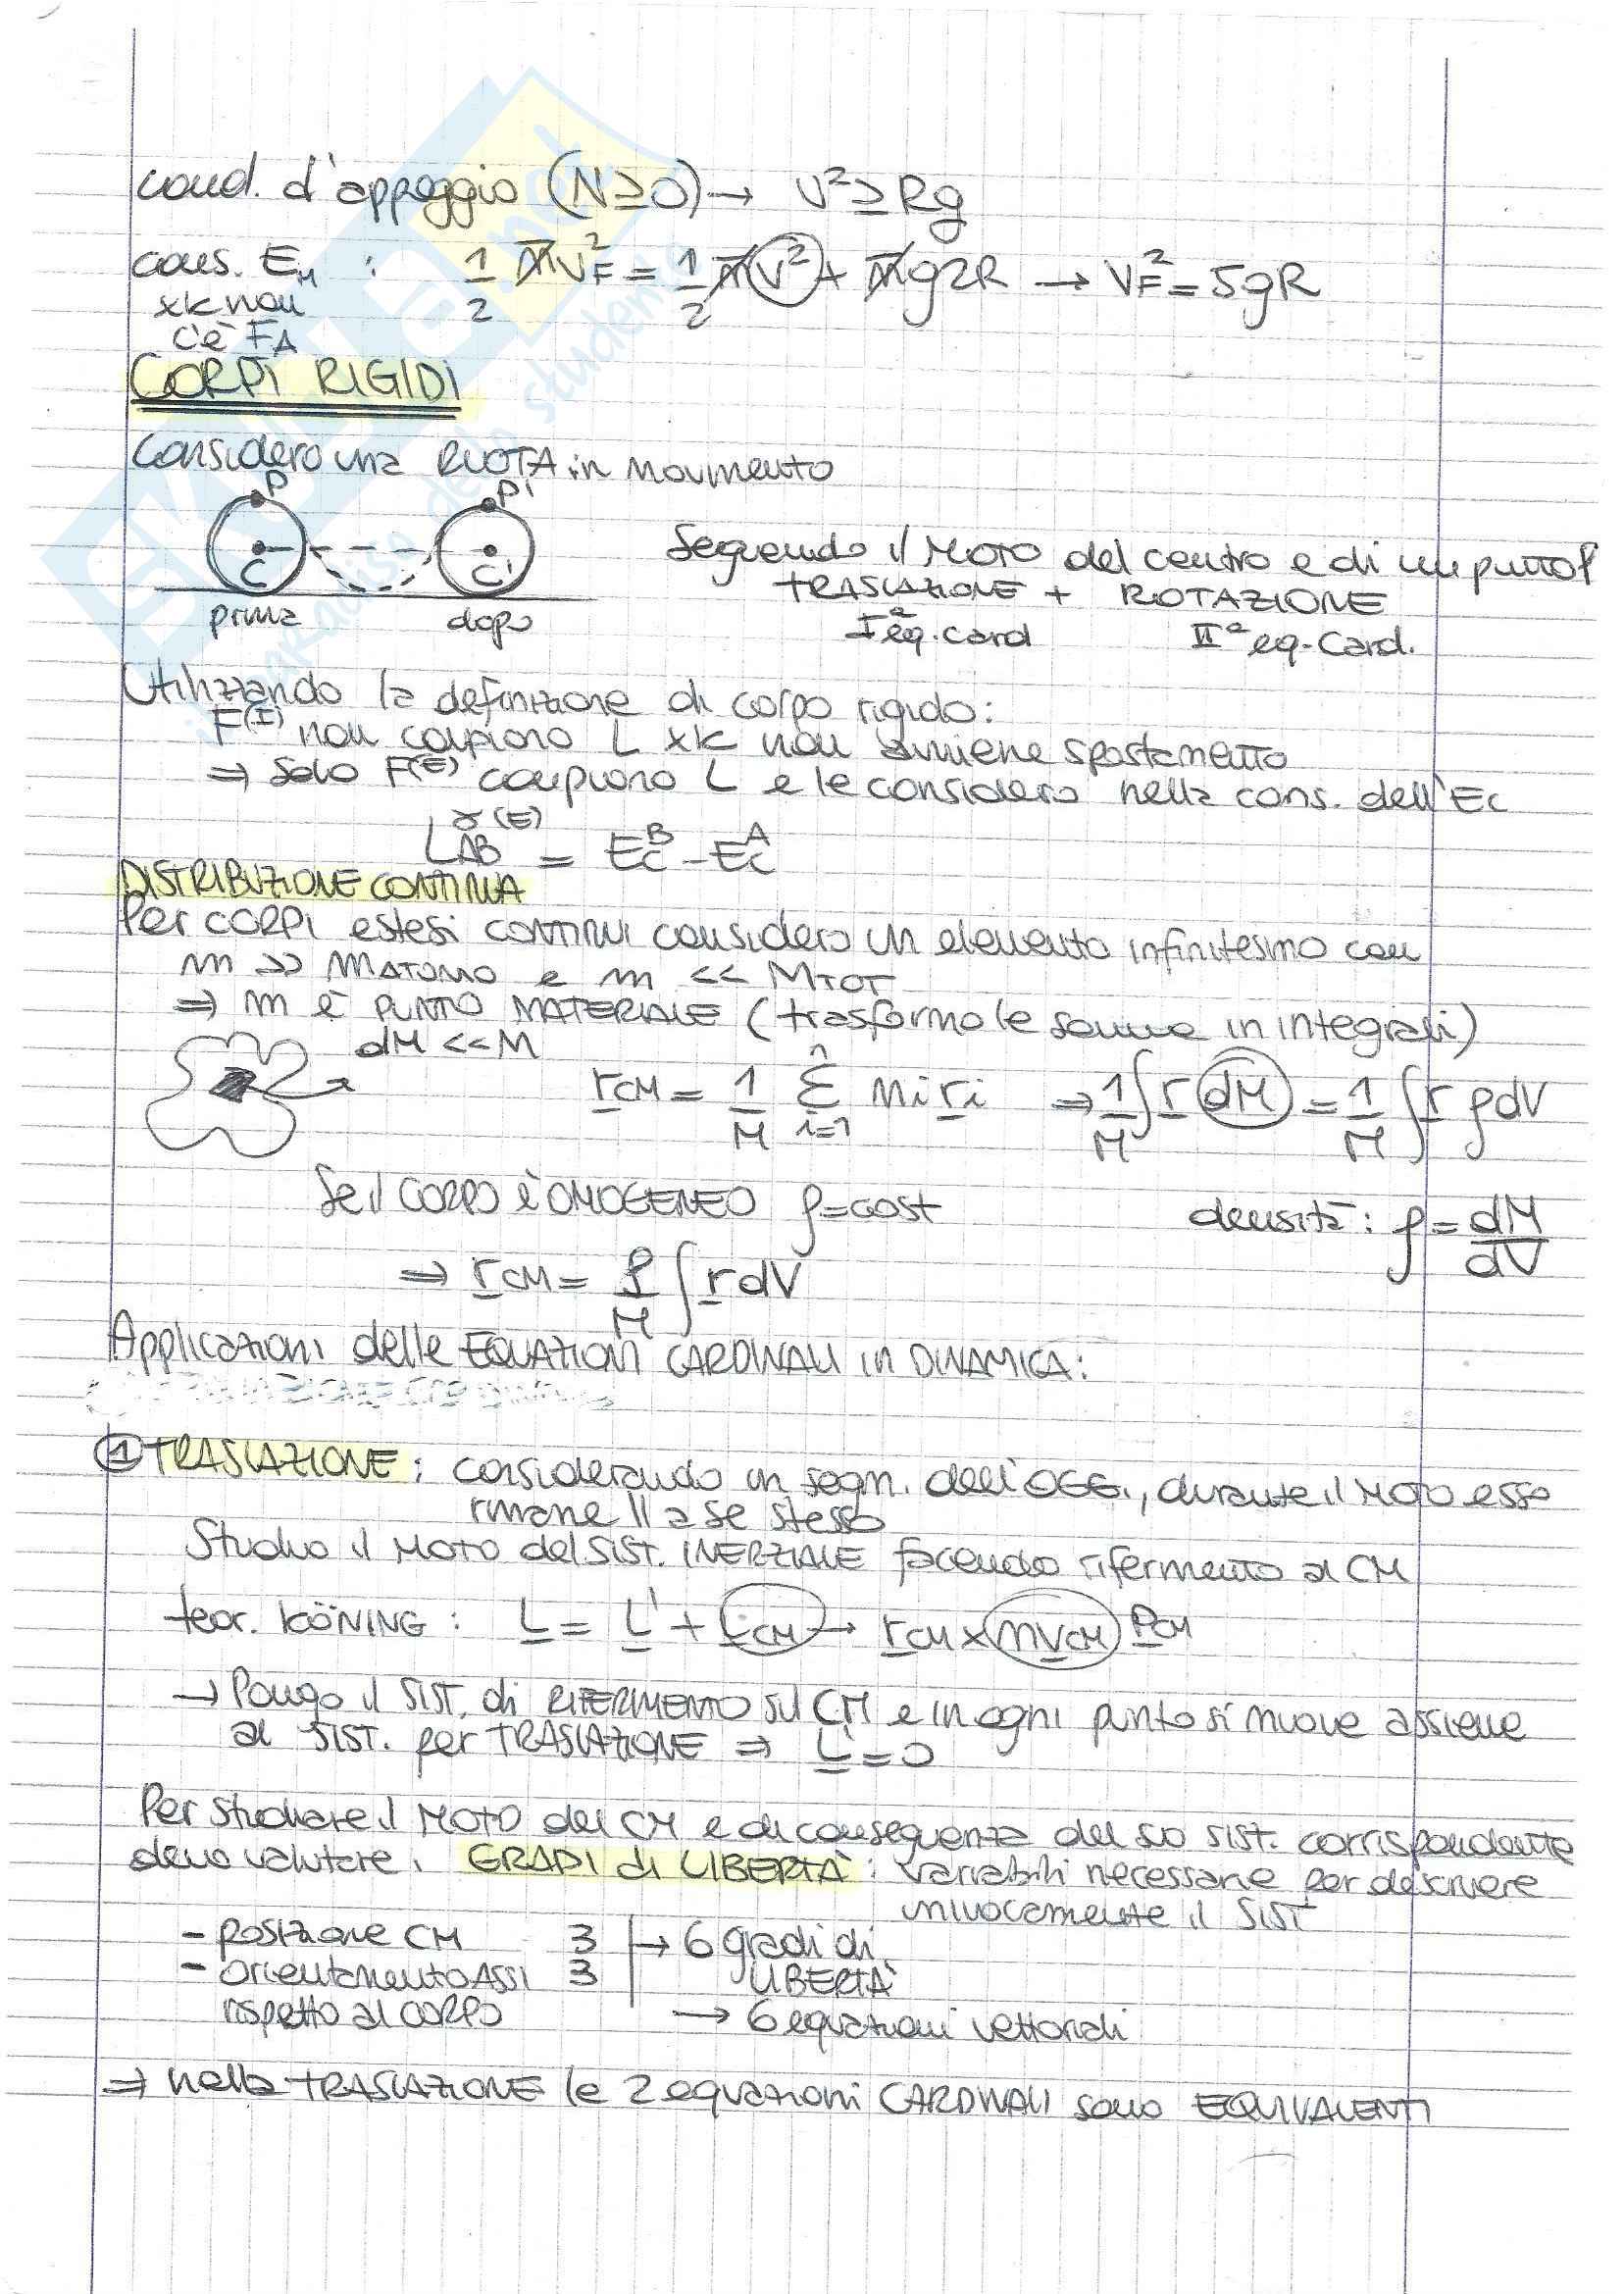 cond. d'appoggio (N≥0) → V²≥Rg
cons. E_M : 1/2 m V_F² = 1/2 m V² + m g 2R → V_F² = 5gR
xk non
c'è F_A
CORPI RIGIDI
Considero una RUOTA in movimento
P P'
C C'
prima dopo
Seguendo il MOTO del centro e di un punto P
TRASLAZIONE + ROTAZIONE
Iª eq. card IIª eq. Card.
Utilizzando la definizione di corpo rigido:
F^(I) non compiono L xk non avviene spostamento
⇒ Solo F^(E) compiono L e le considero nella cons. dell'Ec
L_AB^γ(E) = Ec^B - Ec^A
DISTRIBUZIONE CONTINUA
Per CORPI estesi CONTINUI considero un elemento infinitesimo con
m >> M_ATOMO e m << M_TOT
⇒ m è PUNTO MATERIALE (trasformo le somme in integrali)
dM << M
r_CM = 1/M Σ_{i=1}^n mi ri ⇒ 1/M ∫ r dM = 1/M ∫ r ρ dV
Se il CORPO è OMOGENEO ρ=cost densità: ρ = dM/dV
⇒ r_CM = ρ/M ∫ r dV
Applicazioni delle EQUAZIONI CARDINALI in DINAMICA:
1 TRASLAZIONE: considerando un segm. dell'OGG., durante il MOTO esso
rimane // a se stesso
Studio il MOTO del SIST. INERZIALE facendo riferimento al CM
teor. KÖNING : L = L' + L_CM → r_CM x m v_CM P_CM
→ Pongo il SIST. di RIFERIMENTO sul CM e in ogni punto si muove assieme
al SIST. per TRASLAZIONE ⇒ L' = 0
Per studiare il MOTO del CM e di conseguenza del suo sist. corrispondente
devo valutare i GRADI di LIBERTÀ : variabili necessarie per descrivere
univocamente il SIST
- posizione CM 3 → 6 gradi di
- orientamento ASSI 3 LIBERTÀ
rispetto al CORPO → 6 equazioni vettoriali
⇒ nella TRASLAZIONE le 2 equazioni CARDINALI sono EQUIVALENTI